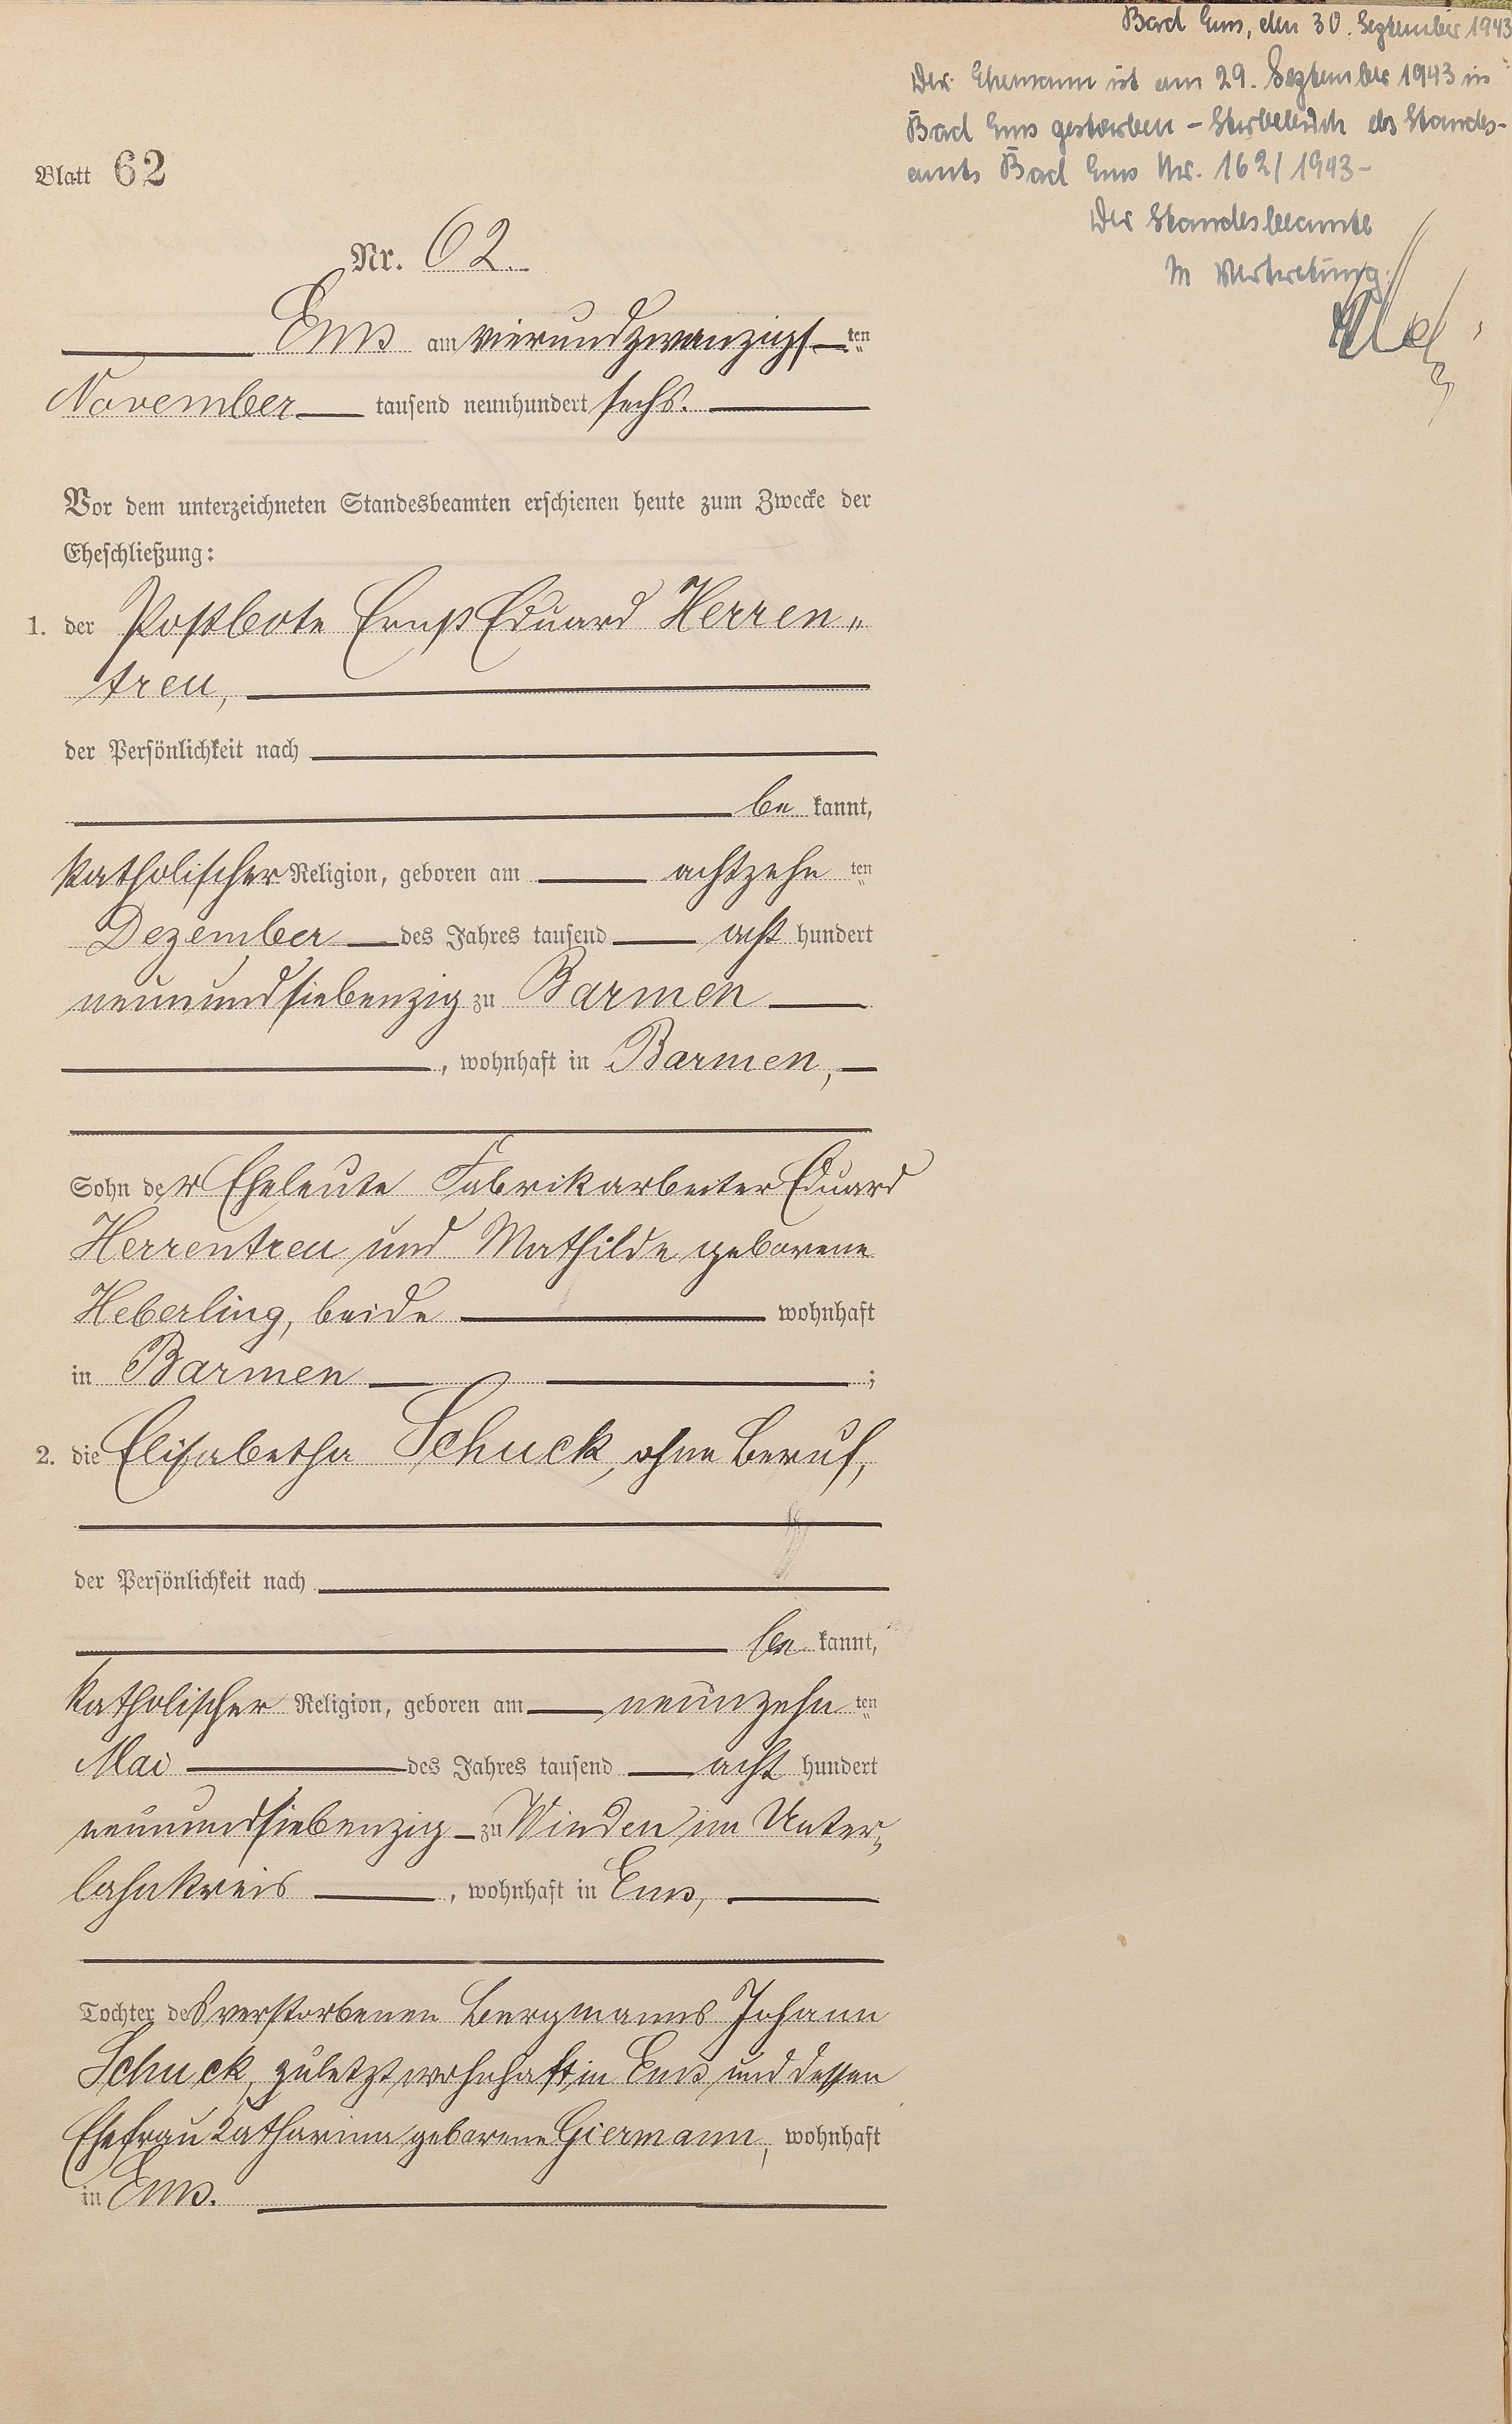 Bad Ems, den 30. September 1943
Der Ehemann ist am 29. September 1943 in
Bad Ems gestorben – Sterbebuch des Standes-
amts Bad Ems Nr. 162/1943 –
Der Standesbeamte
In Vertretung:
Blatt 62
Nr. 62.
Ems am vierundzwanzigsten
November tausend neunhundert sechs.
Vor dem unterzeichneten Standesbeamten erschienen heute zum Zwecke der
Eheschließung:
1. der Postbote Ernst Eduard Herren„
treu,
der Persönlichkeit nach
be kannt,
katholischer Religion, geboren am achtzehn ten
Dezember des Jahres tausend acht hundert
neunundsiebenzig zu Barmen
, wohnhaft in Barmen,
Sohn der Eheleute Fabrikarbeiter Eduard
Herrentreu und Mathilde geborene
Heberling, beide wohnhaft
in Barmen ;
2. die Elisabetha Schuck, ohne Beruf,
der Persönlichkeit nach
be kannt,
katholischer Religion, geboren am neunzehn ten
Mai des Jahres tausend acht hundert
neunundsiebenzig zu Winden im Unter„
lahnkreis , wohnhaft in Ems,
Tochter des verstorbenen Bergmanns Johann
Schuck, zuletzt wohnhaft in Ems und dessen
Ehefrau Katharina geborene Giermann, wohnhaft
in Ems.